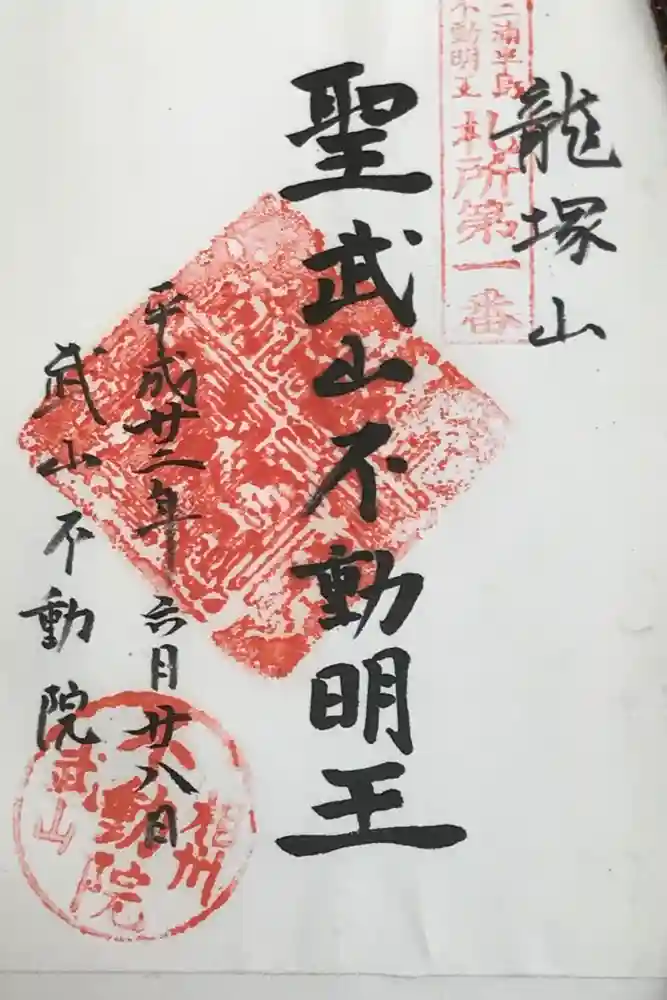 龍塚山
三浦半島
不動明王
札所第一番
聖武山不動明王
平成廿二年 六月廿八日
武山不動院
相州
不動院
武山